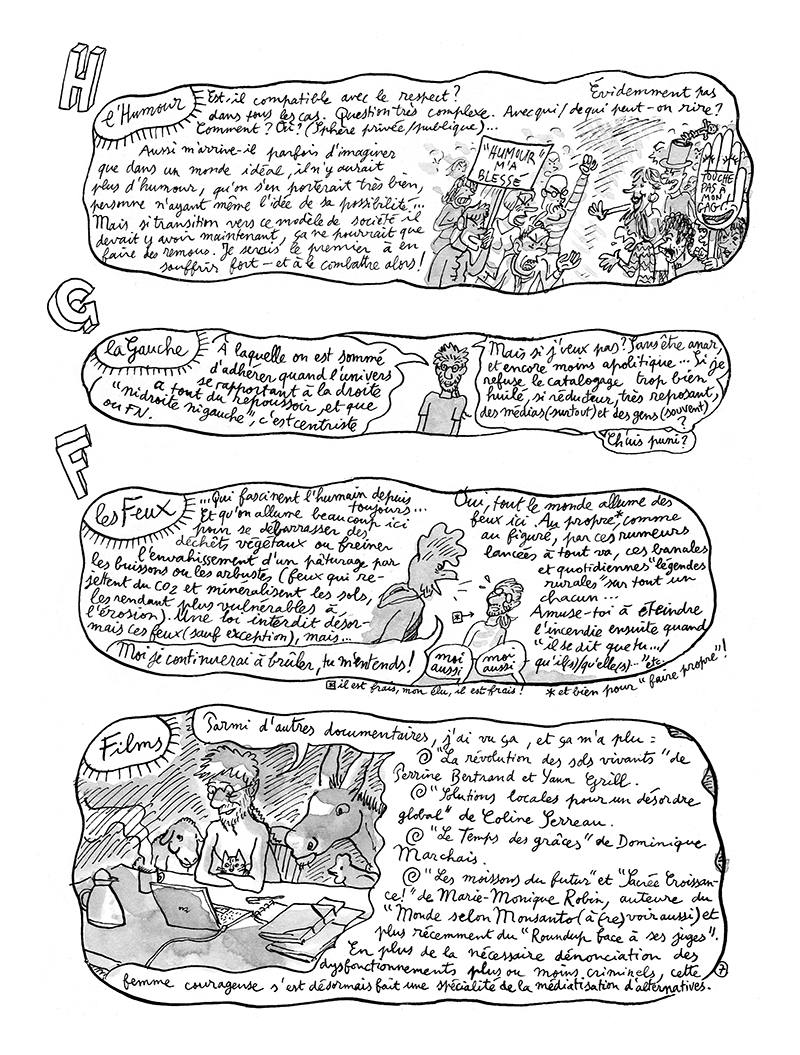 H
l'Humour
Est-il compatible avec le respect?
Évidemment pas
dans tous les cas. Question très complexe. Avec qui/de qui peut-on rire?
Comment? Où? (Sphère privée/publique)...
Aussi m'arrive-il parfois d'imaginer
que dans un monde idéal, il n'y aurait
plus d'humour, qu'on s'en porterait très bien,
personne n'ayant même l'idée de sa possibilité...
Mais si transition vers ce modèle de société il
devait y avoir maintenant, ça ne pourrait que
faire des remous. Je serais le premier à en
souffrir fort – et à le combattre alors!
"HUMOUR"
M'A
BLESSÉ
TOUCHE
PAS À
MON
GAG!
G
la Gauche
À laquelle on est sommé
d'adhérer quand l'univers
se rapportant à la droite
a tout du repoussoir, et que
"ni droite ni gauche", c'est centriste
ou FN.
Mais si j'veux pas? Sans être anar,
et encore moins apolitique... Si je
refuse le catalogage trop bien
huilé, si réducteur, très reposant,
des médias (surtout) et des gens (souvent)
?
Ch'uis puni?
F
les Feux
...Qui fascinent l'humain depuis
toujours...
Et qu'on allume beaucoup ici
pour se débarrasser des
déchets végétaux ou freiner
l'envahissement d'un pâturage par
les buissons ou les arbustes (feux qui re-
jettent du CO2 et minéralisent les sols,
les rendant plus vulnérables à
l'érosion). Une loi interdit désor-
mais ces feux (sauf exception), mais...
Moi je continuerai à brûler, tu m'entends!
moi
aussi
moi
aussi
Oui, tout le monde allume des
feux ici. Au propre*, comme
au figuré, par ces rumeurs
lancées à tout va, ces banales
et quotidiennes "légendes
rurales" sur tout un
chacun...
Amuse-toi à éteindre
l'incendie ensuite quand
"il se dit que tu.../
qu'il(s)/qu'elle(s)..." etc.
* il est frais, mon élu, il est frais!
* et bien pour "faire propre"!
Films
Parmi d'autres documentaires, j'ai vu ça, et ça m'a plu :
"La révolution des sols vivants" de
Perrine Bertrand et Yann Grill.
"Solutions locales pour un désordre
global" de Coline Serreau.
"Le Temps des grâces" de Dominique
Marchais.
"Les moissons du futur" et "Sacrée Croissan-
ce!" de Marie-Monique Robin, auteure du
"Monde selon Monsanto (à (re)voir aussi) et
plus récemment du "Roundup face à ses juges".
En plus de la nécessaire dénonciation des
dysfonctionnements plus ou moins criminels, cette
femme courageuse s'est désormais fait une spécialité de la médiatisation d'alternatives.
7